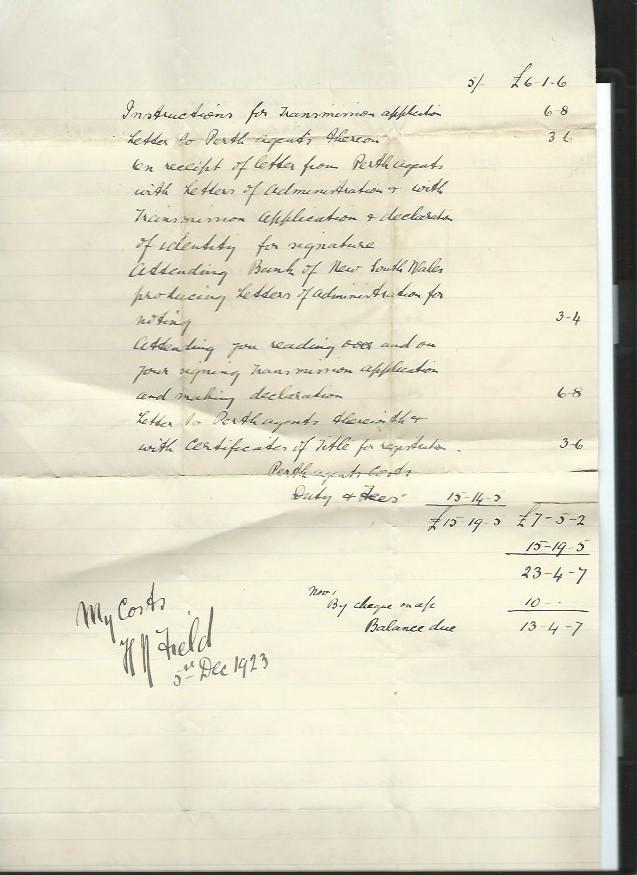 5/- £6-1-6
Instructions for Transmission application 6-8
Letter to Perth agents thereon 3-6
On receipt of letter from Perth agents
with Letters of Administration & with
Transmission Application & declaration
of identity for signature
Attending Bank of New South Wales
producing Letters of Administration for
noting 3-4
Attending you reading over and on
your signing Transmission application
and making declaration 6-8
Letter to Perth agents therewith &
with Certificates of Title for registration. 3-6
Perth agents Costs
Duty & Fees 15-14-5
£15-19-5 £7-5-2
15-19-5
23-4-7
Nov.
By cheque on a/c 10 - -
Balance due 13-4-7
My Costs
Field
5th Dec 1923